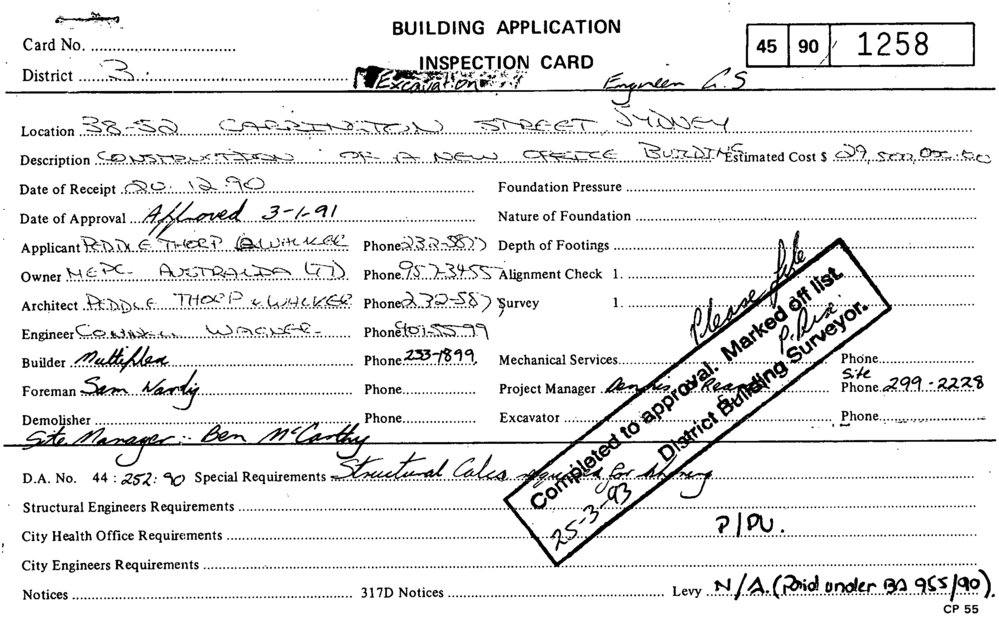 BUILDING APPLICATION
Card No.
INSPECTION CARD
45 90 / 1258
District 3.
Excavation Engineer G.S
Location 38-52 CARRINGTON STREET, SYDNEY
Description CONSTRUCTION OF A NEW OFFICE BUILDING Estimated Cost $ 29,500,000.00
Date of Receipt 20.12.90 Foundation Pressure
Date of Approval Approved 3-1-91 Nature of Foundation
Applicant PEDDLE THORP & WALKER Phone 232-5877 Depth of Footings
Owner MEPC AUSTRALIA LTD Phone 957-3455 Alignment Check 1.
Architect PEDDLE THORP & WALKER Phone 232-5877 Survey 1.
Engineer CONNELL WAGNER Phone 5599
Builder Multiplex Phone 233-1899. Mechanical Services Phone
Foreman Sam Nardig Phone Project Manager Dennis Site Phone 299-2228
Demolisher Phone Excavator Phone
Site Manager:- Ben McCarthy
Please file
Completed to approval. Marked off list.
25-3-93 District Building Surveyor.
D.A. No. 44:252:90 Special Requirements Structural Calcs required for shoring
Structural Engineers Requirements
P/PU.
City Health Office Requirements
City Engineers Requirements
Notices 317D Notices Levy N/A. (Paid under BA 955/90).
CP 55